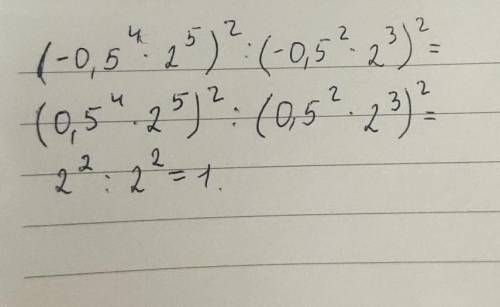 (-0,5⁴ · 2⁵)² : (-0,5² · 2³)² =
(0,5⁴ · 2⁵)² : (0,5² · 2³)² =
2² : 2² = 1.